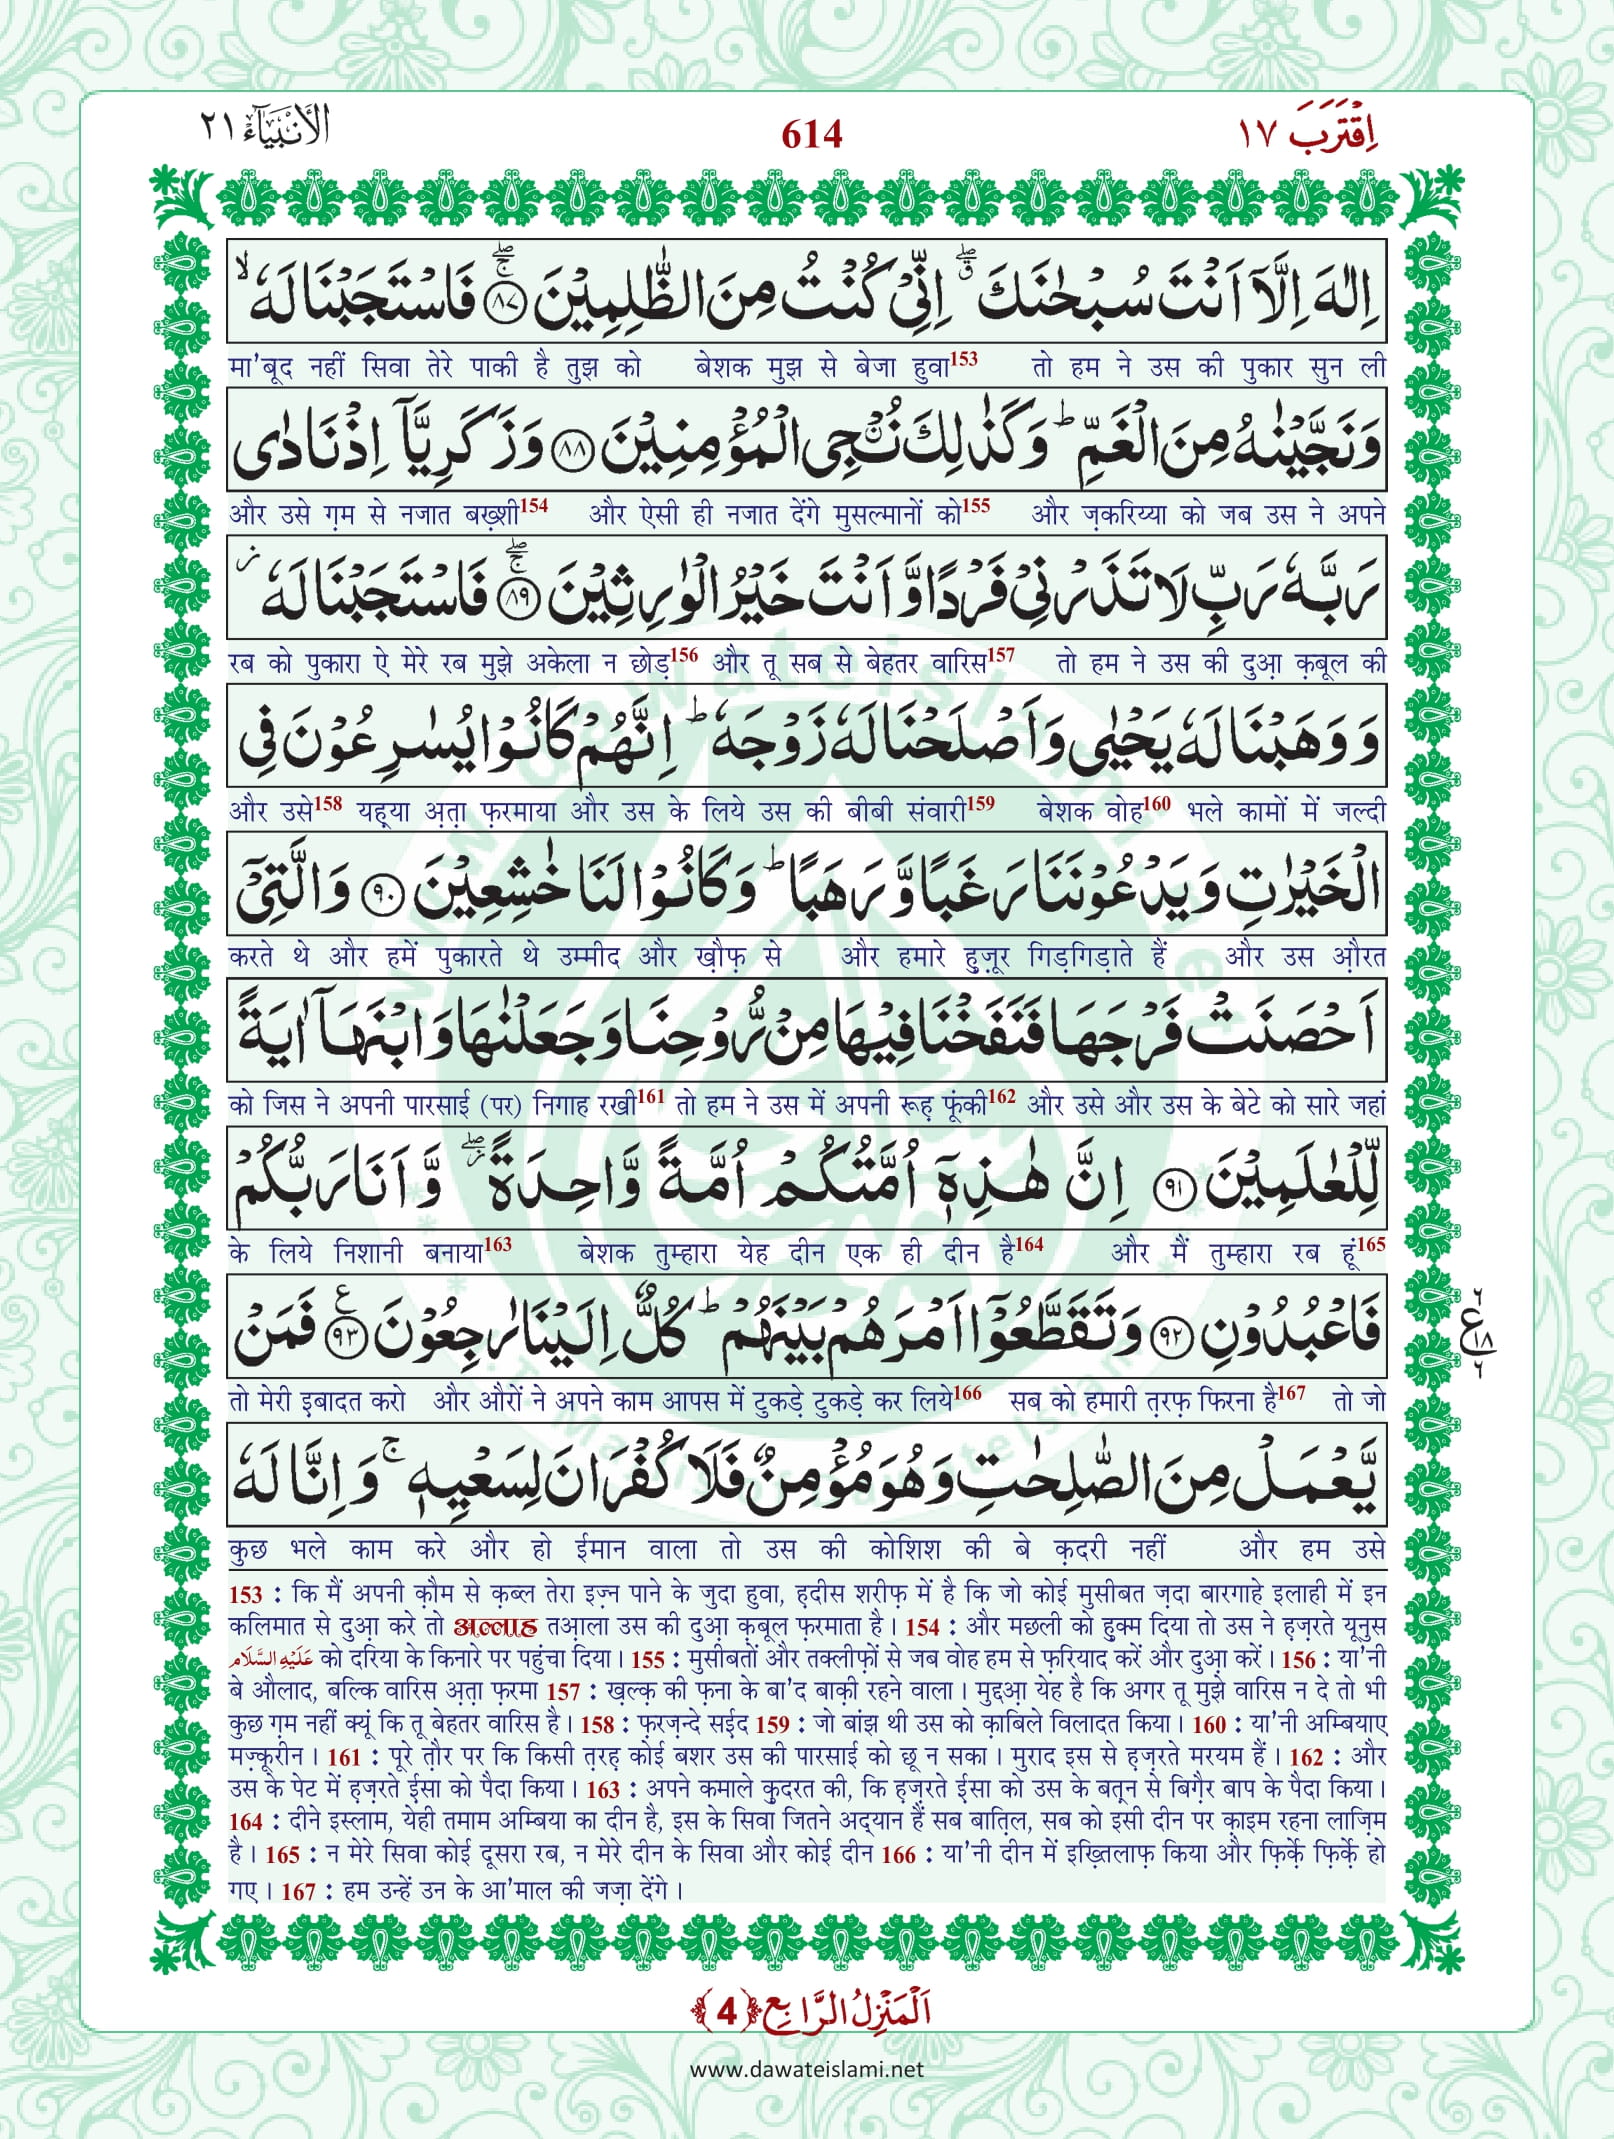 اِقْتَرَبَ ١٧
614
الْاَنْبِيَآء ٢١
اِلٰهَ اِلَّاۤ اَنْتَ سُبْحٰنَكَ ۖۗ اِنِّیْ كُنْتُ مِنَ الظّٰلِمِیْنَ ﴿۸۷﴾ۚۖ فَاسْتَجَبْنَا لَهٗ ۙ
मा'बूद नहीं सिवा तेरे पाकी है तुझ को बेशक मुझ से बेजा हुवा153 तो हम ने उस की पुकार सुन ली
وَ نَجَّیْنٰهُ مِنَ الْغَمِّ ؕ وَ كَذٰلِكَ نُـنْجِی الْمُؤْمِنِیْنَ ﴿۸۸﴾ وَ زَكَرِیَّاۤ اِذْ نَادٰی
और उसे ग़म से नजात बख़्शी154 और ऐसी ही नजात देंगे मुसल्मानों को155 और ज़करिय्या को जब उस ने अपने
رَبَّهٗ رَبِّ لَا تَذَرْنِیْ فَرْدًا وَّ اَنْتَ خَیْرُ الْوٰرِثِیْنَ ﴿۸۹﴾ۚۖ فَاسْتَجَبْنَا لَهٗ ؗ
रब को पुकारा ऐ मेरे रब मुझे अकेला न छोड़156 और तू सब से बेहतर वारिस157 तो हम ने उस की दुआ़ क़बूल की
وَ وَهَبْنَا لَهٗ یَحْیٰی وَ اَصْلَحْنَا لَهٗ زَوْجَهٗ ؕ اِنَّهُمْ كَانُوْا یُسٰرِعُوْنَ فِی
और उसे158 यह़्या अ़त़ा फ़रमाया और उस के लिये उस की बीबी संवारी159 बेशक वोह160 भले कामों में जल्दी
الْخَیْرٰتِ وَ یَدْعُوْنَنَا رَغَبًا وَّ رَهَبًا ؕ وَ كَانُوْا لَنَا خٰشِعِیْنَ ﴿۹۰﴾ وَ الَّتِیْۤ
करते थे और हमें पुकारते थे उम्मीद और ख़ौफ़ से और हमारे हुज़ूर गिड़गिड़ाते हैं और उस औ़रत
اَحْصَنَتْ فَرْجَهَا فَنَفَخْنَا فِیْهَا مِنْ رُّوْحِنَا وَ جَعَلْنٰهَا وَ ابْنَهَاۤ اٰیَةً
को जिस ने अपनी पारसाई (पर) निगाह रखी161 तो हम ने उस में अपनी रूह़ फूंकी162 और उसे और उस के बेटे को सारे जहां
لِّلْعٰلَمِیْنَ ﴿۹۱﴾ اِنَّ هٰذِهٖۤ اُمَّتُكُمْ اُمَّةً وَّاحِدَةً ۖؗ وَّ اَنَا رَبُّكُمْ
के लिये निशानी बनाया163 बेशक तुम्हारा येह दीन एक ही दीन है164 और मैं तुम्हारा रब हूं165
فَاعْبُدُوْنِ ﴿۹۲﴾ وَ تَقَطَّعُوْۤا اَمْرَهُمْ بَیْنَهُمْ ؕ كُلٌّ اِلَیْنَا رٰجِعُوْنَ ﴿۹۳﴾ع فَمَنْ
٦ ع ١٨ ٦
तो मेरी इबादत करो और औरों ने अपने काम आपस में टुकड़े टुकड़े कर लिये166 सब को हमारी त़रफ़ फिरना है167 तो जो
یَّعْمَلْ مِنَ الصّٰلِحٰتِ وَ هُوَ مُؤْمِنٌ فَلَا كُفْرَانَ لِسَعْیِهٖ ۚ وَ اِنَّا لَهٗ
कुछ भले काम करे और हो ईमान वाला तो उस की कोशिश की बे क़दरी नहीं और हम उसे
153 : कि मैं अपनी क़ौम से क़ब्ल तेरा इज़्न पाने के जुदा हुवा, ह़दीस शरीफ़ में है कि जो कोई मुसीबत ज़दा बारगाहे इलाही में इन
कलिमात से दुआ़ करे तो अल्लाह तआ़ला उस की दुआ़ क़बूल फ़रमाता है। 154 : और मछली को हुक्म दिया तो उस ने ह़ज़रते यूनुस
عَلَيْهِ السَّلَام को दरिया के किनारे पर पहुंचा दिया। 155 : मुसीबतों और तक्लीफ़ों से जब वोह हम से फ़रियाद करें और दुआ़ करें। 156 : या'नी
बे औलाद, बल्कि वारिस अ़त़ा फ़रमा 157 : ख़ल्क़ की फ़ना के बा'द बाक़ी रहने वाला। मुद्दआ़ येह है कि अगर तू मुझे वारिस न दे तो भी
कुछ ग़म नहीं क्यूं कि तू बेहतर वारिस है। 158 : फ़रज़न्दे सई़द 159 : जो बांझ थी उस को क़ाबिले विलादत किया। 160 : या'नी अम्बियाए
मज़्कूरीन। 161 : पूरे त़ौर पर कि किसी त़रह़ कोई बशर उस की पारसाई को छू न सका। मुराद इस से ह़ज़रते मरयम हैं। 162 : और
उस के पेट में ह़ज़रते ई़सा को पैदा किया। 163 : अपने कमाले क़ुदरत की, कि ह़ज़रते ई़सा को उस के बत़्न से बिग़ैर बाप के पैदा किया।
164 : दीने इस्लाम, येही तमाम अम्बिया का दीन है, इस के सिवा जितने अद्यान हैं सब बात़िल, सब को इसी दीन पर क़ाइम रहना लाज़िम
है। 165 : न मेरे सिवा कोई दूसरा रब, न मेरे दीन के सिवा और कोई दीन 166 : या'नी दीन में इख़्तिलाफ़ किया और फ़िर्क़े फ़िर्क़े हो
गए। 167 : हम उन्हें उन के आ'माल की जज़ा देंगे।
اَلْمَنْزِلُ الرَّابِع ﴿4﴾
www.dawateislami.net